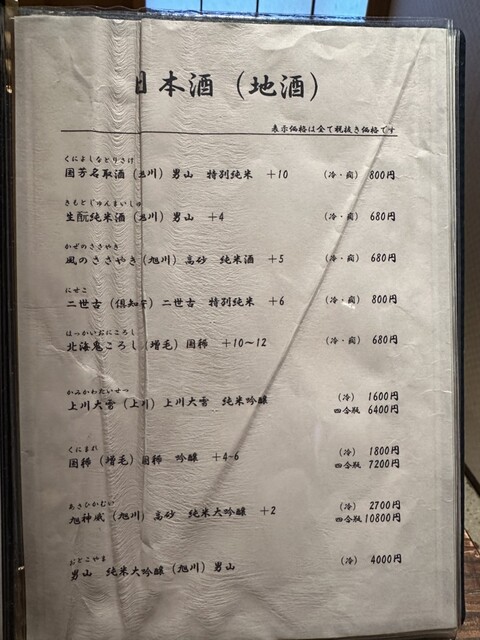 日本酒（地酒）
表示価格は全て税抜き価格です
くによしなとりさけ
国芳名取酒（旭川）男山　特別純米　＋10　（冷・燗）　800円
きもとじゅんまいしゅ
生酛純米酒（旭川）男山　＋4　（冷・燗）　680円
かぜのささやき
風のささやき（旭川）高砂　純米酒　＋5　（冷・燗）　680円
にせこ
二世古（倶知安）二世古　特別純米　＋6　（冷・燗）　800円
ほっかいおにころし
北海鬼ころし（増毛）国稀　＋10～12　（冷・燗）　680円
かみかわたいせつ
上川大雪（上川）上川大雪　純米吟醸　（冷）　1600円
四合瓶　6400円
くにまれ
国稀（増毛）国稀　吟醸　＋4~6　（冷）　1800円
四合瓶　7200円
あさひかむい
旭神威（旭川）高砂　純米大吟醸　＋2　（冷）　2700円
四合瓶　10800円
おとこやま
男山　純米大吟醸（旭川）男山　（冷）　4000円